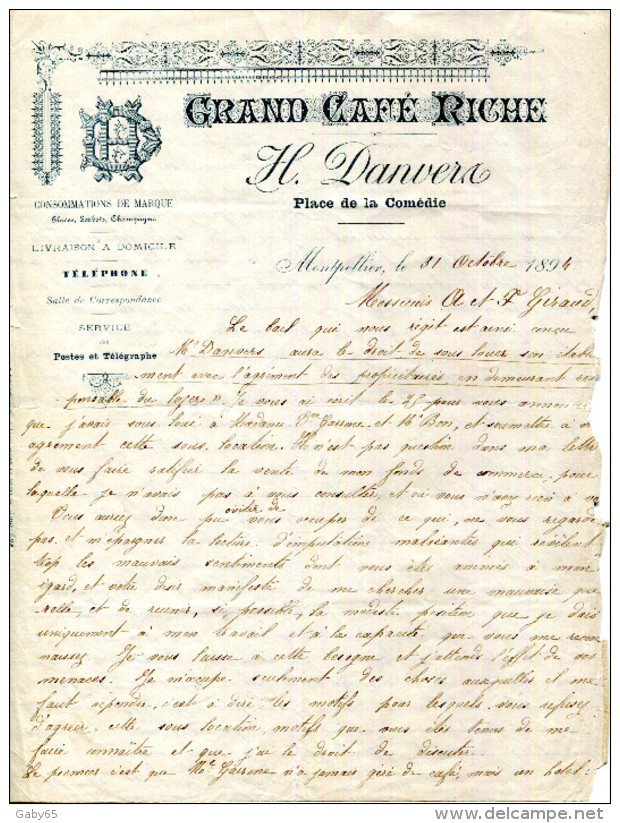 GRAND CAFÉ RICHE
H. Danvers
Place de la Comédie
CONSOMMATIONS DE MARQUE
Glaces, Sorbets, Champagne
LIVRAISON A DOMICILE
TÉLÉPHONE
Salle de Correspondance
SERVICE
DE
Postes et Télégraphe
Montpellier, le 31 Octobre 1894
Messieurs A et F Giraud,
Le bail qui nous régit est ainsi conçu
Mr Danvers aura le droit de sous louer son établis
ment avec l'agrément des propriétaires en demeurant res
ponsable du loyer". Je vous ai écrit le 25 pour vous annoncer
que j'avais sous loué à Madame Vve Gassone et Mr Bon, et soumettre à
agrément cette sous location. Il n'est pas question dans ma lettre
de vous faire ratifier la vente de mon fonds de commerce pour
laquelle je n'avais pas à vous consulter, et où vous n'avez rien à
Vous auriez donc pu éviter de vous occuper de ce qui, ne vous regarde
pas, et m'épargner la lecture d'imputations malveillantes qui révèlent
trop les mauvais sentiments dont vous êtes animés à mon
égard, et votre désir manifeste de me chercher une mauvaise que
relle, et de ruiner, si possible, la modeste position que je dois
uniquement à mon travail et à la capacité que vous me recon
naissez. Je vous laisse à cette besogne et j'attends l'effet de vos
menaces. Je m'occupe seulement des choses auxquelles il me
faut répondre, c'est à dire les motifs pour lesquels vous refusez
d'agréer cette sous location, motifs que vous êtes tenus de me
faire connaître et que j'ai le droit de discuter.
Le premier c'est que Me Gassone n'a jamais géré de café, mais un hotel:
Gaby65
www.delcampe.net